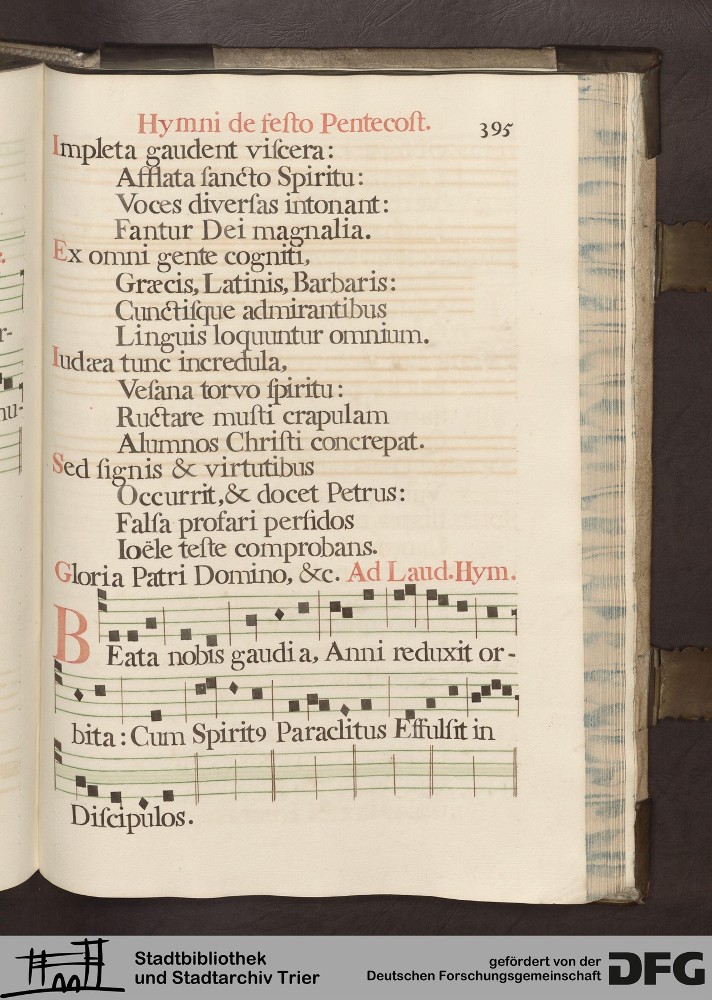 Hymni de feſto Pentecoſt.
395
Impleta gaudent viſcera:
Afflata ſancto Spiritu:
Voces diverſas intonant:
Fantur Dei magnalia.
Ex omni gente cogniti,
Græcis, Latinis, Barbaris:
Cunctiſque admirantibus
Linguis loquuntur omnium.
Iudæa tunc incredula,
Veſana torvo ſpiritu:
Ructare muſti crapulam
Alumnos Chriſti concrepat.
Sed ſignis & virtutibus
Occurrit, & docet Petrus:
Falſa profari perfidos
Ioële teſte comprobans.
Gloria Patri Domino, &c. Ad Laud. Hym.
BEata nobis gaudia, Anni reduxit or-
bita: Cum Spirit9 Paraclitus Effulſit in
Diſcipulos.
r-
nu-
Stadtbibliothek
und Stadtarchiv Trier
gefördert von der
Deutschen Forschungsgemeinschaft
DFG